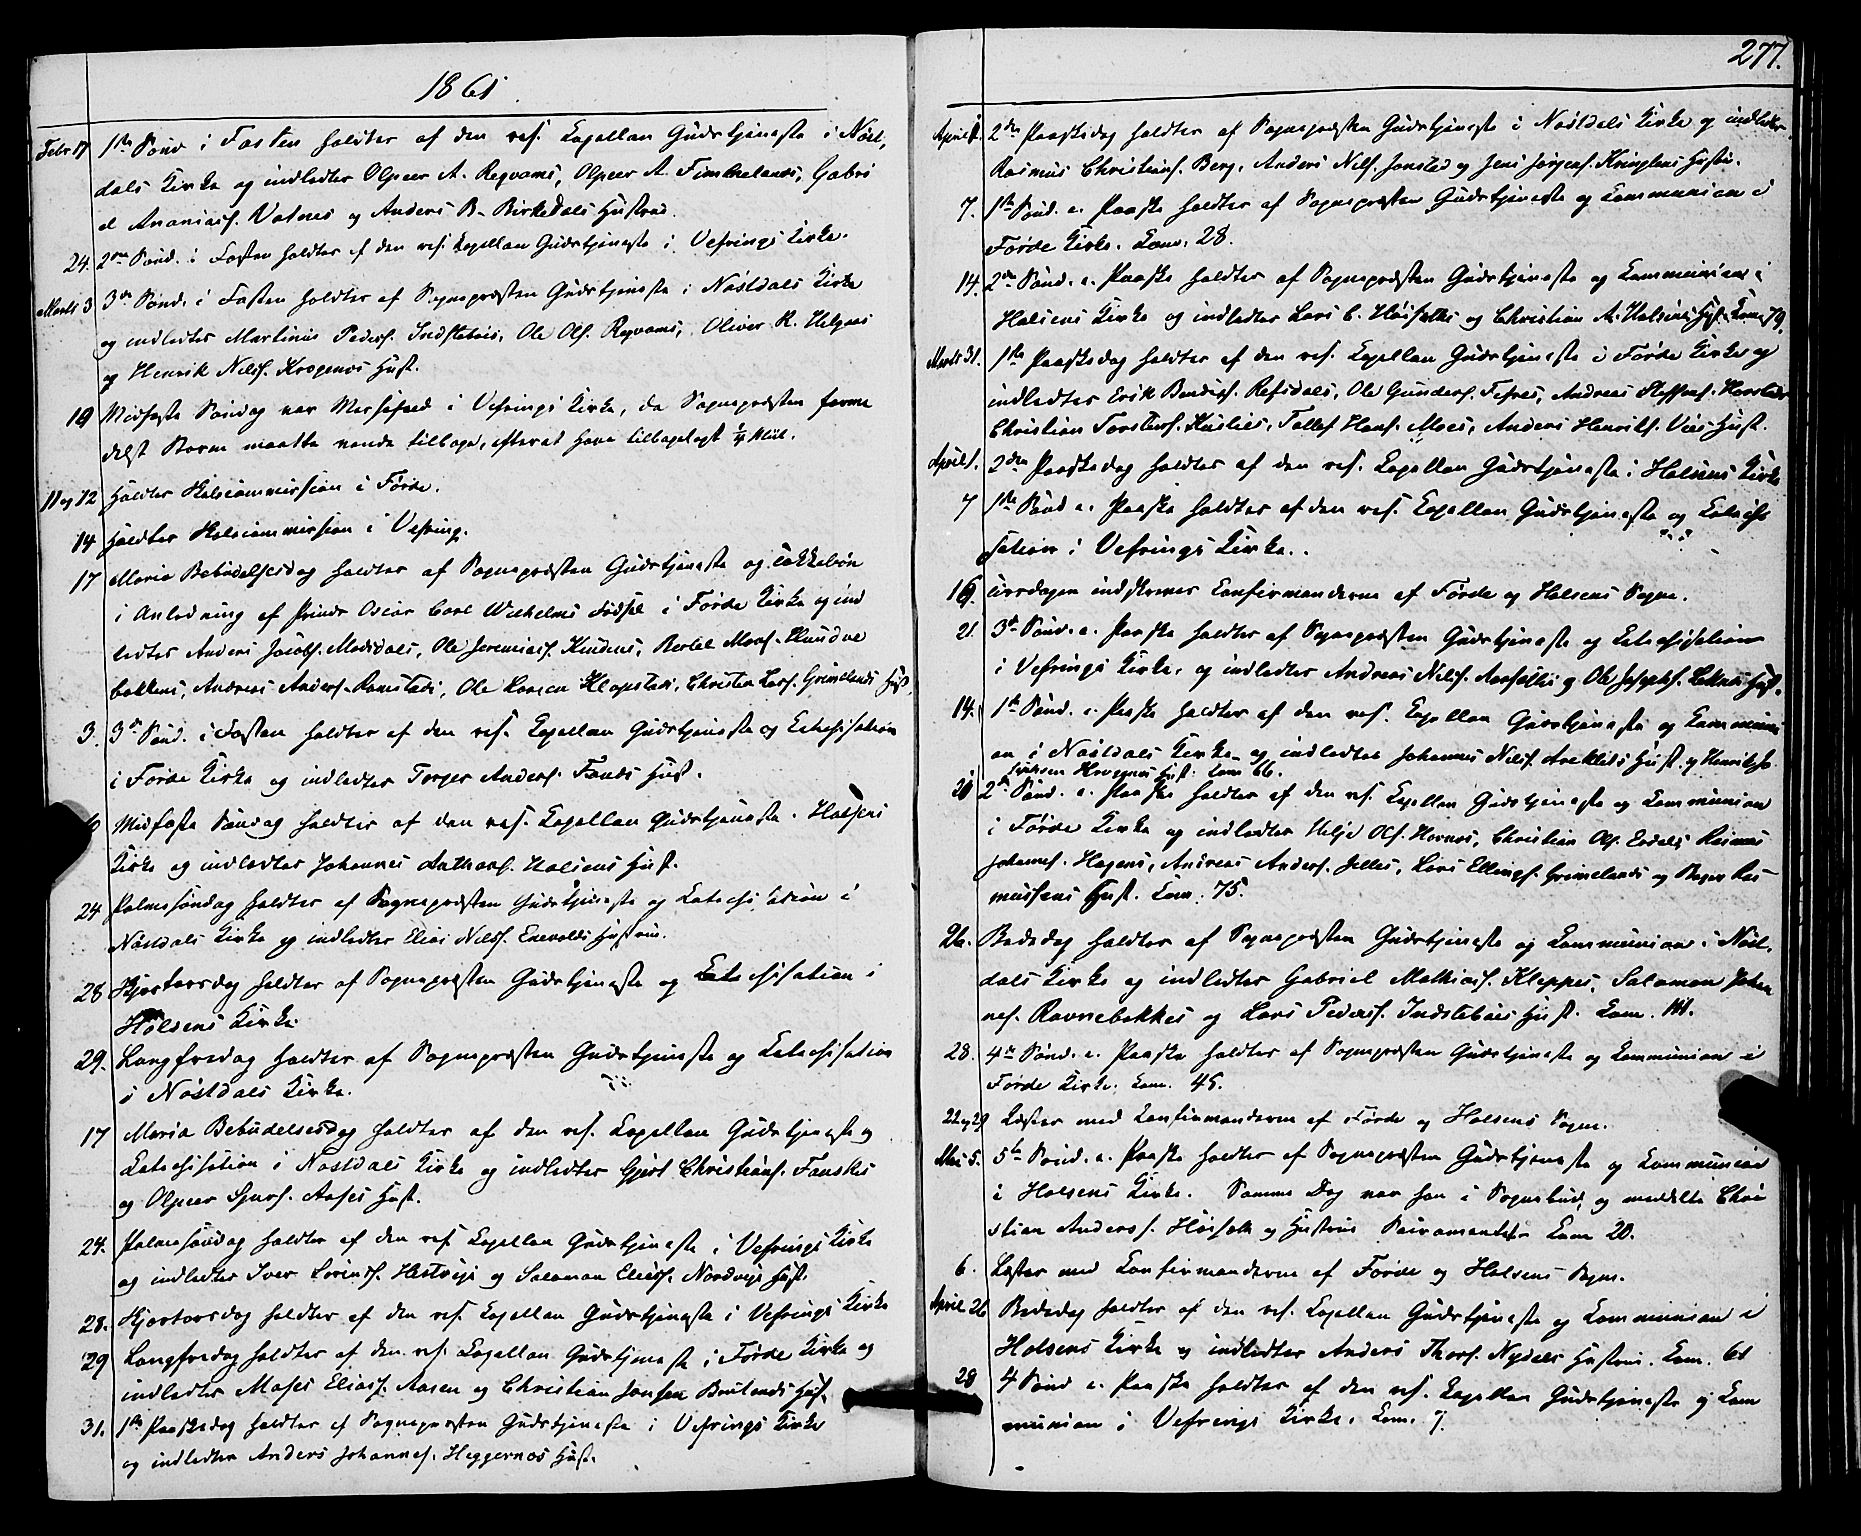 1861.
Febr 17 1ste Sønd i Fasten holdtes af den res. Capellan Gudstjeneste i Nøst,
dals Kirke og indledtes Olpeer A. Reqvams, Olpeer A. Timmelands, Gabri
el Ananiass. Vatnes og Anders B. Birkedals Hustru.
24. 2den Sønd. i Fasten holdtes af den res. Capellan Gudstjeneste i Vefrings Kirke.
Marts 3 3die Sønd. i Fasten holdtes af Sognepræsten Gudstjeneste i Nøstdals Kirke
og indledtes Martinus Peders. Indstebøs, Ole Ols. Reqvams, Oliver R. Helgaas
og Henrik Nils. Krogenæs Hust.
10 Midfaste Søndag var Messefald i Vefrings Kirke, da Sognepræsten forme
delst Storm maatte vende tilbage, efterat have tilbagelagt 1/4 Miil.
11 og 12 Holdtes Skolecommission i Førde.
14 Holdtes Skolecommission i Vefring.
17 Maria Bebudelsesdag holdtes af Sognepræsten Gudstjeneste og Takkebøn
i Anledning af Prinds Oscar Carl Wilhelms Fødsel i Førde Kirke og ind
ledtes Anders Jacobs. Mosdals, Ole Jeremiass. Kindens, Bertel Mons. Hundve
bakkens, Andreas Anders. Ramstads, Ole Larsen Klopstads, Christen Lars. Grimelands Hust.
3. 3die Sønd. i Fasten holdtes af den res. Capellan Gudstjeneste og Catechisation
i Førde Kirke og indledtes Torger Anders. Fonds Hust.
10 Midfaste Søndag holdtes af den res. Capellan Gudstjeneste i Holsens
Kirke og indledtes Johannes Anthons. Holsens Hust.
24 Palmesøndag holdtes af Sognepræsten Gudstjeneste og Catechisation i
Nøstdals Kirke og indledtes Elias Nils. Enevolds Hustru.
28 Skjærtorsdag holdtes af Sognepræsten Gudstjeneste og Catechisation i
Holsens Kirke
29. Langfredag holdtes af Sognepræsten Gudstjeneste og Catechisation
i Nøstdals Kirke.
17 Maria Bebudelsesdag holdtes af den res. Capellan Gudstjeneste og
Catechisation i Nøstdals Kirke og indledtes Gjert Christians. Fanskes
og Olpeer Sjurs. Aases Hust.
24. Palmesøndag holdtes af den res Capellan Gudstjeneste i Vefrings Kirke
og indledtes Iver Sørens. Hestvigs og Salamon Elias. Nordvigs Hust.
28. Skjærtorsdag holdtes af den res. Capellan Gudstjeneste i Vefrings Kirke
29 Langfredag holdtes af den res. Capellan Gudstjeneste i Førde Kirke og
indledtes Moses Elias. Aasen og Christian Jonsen Brulands Hust.
31. 1ste Paaskedag holdtes af Sognepræsten Gudstjeneste i Vefrings Kirke
og indledtes Anders Johannes. Heggernæs Hust.
277.
April 1. 2den Paaskedag holdtes af Sognepræsten Gudstjeneste i Nøstdals Kirke og indledtes
Rasmus Christians. Berg, Anders Nils. Jonstad og Jens Jørgens. Kringlens Hustr.
7. 1ste Sønd. e. Paaske holdtes af Sognepræsten Gudstjeneste og Communion i
Førde Kirke. Com. 28.
14. 2den Sønd. e. Paaske holdtes af Sognepræsten Gudstjeneste og Communion i
Holsens Kirke og indledtes Lars C. Høifalks og Christian A. Holsens Hust. Com. 79.
Marts 31. 1ste Paaskedag holdtes af den res. Capellan Gudstjeneste i Førde Kirke og
indledtes Erik Bendix. Refsdals, Ole Gunders. Tefres, Andreas Steffens. Havstads
Christian Torsteins. Huslies, Tollef Hans. Moes, Anders Henriks. Vies Hust.
April 1. 2den Paaskedag holdtes af den res. Capellan Gudstjeneste i Holsens Kirke
7 1ste Sønd e. Paaske holdtes af den res. Capellan Gudstjeneste og Catechi
sation i Vefrings Kirke.
16. Tirsdagen indskreves Confirmanderne af Førde og Holsens Sogne.
21. 3die Sønd. e. Paaske holdtes af Sognepræsten Gudstjeneste og Catechisation
i Vefrings Kirke, og indledtes Andreas Nils. Aarsetlii og Ole Josephs. Leknes Hust.
14. 1ste Sønd. e. Paaske holdtes af den res. Capellan Gudstjeneste og Communi
on i Nøstdals Kirke og indledtes Johannes Nils. Areklets Hust. og Henrik
Hovenæs Hust. Com 66.
21 2den Sønd. e. Paaske holdtes af den res. Capellan Gudstjeneste og Communion
i Førde Kirke og indledtes Helje Ols. Hornes, Christian Ols. Erdals, Rasmus
Johannes. Hagens, Andreas Anders. Jelles, Lars Ellings. Grimelands og Roger Ras
mussens Hust. Com. 75.
26. Bededag holdtes af Sognepræsten Gudstjeneste og Communion i Nøst,
dals Kirke og indledtes Gabriel Mathias. Kleppes, Salamon Johan
nes. Ravnebakkes og Lars Peders. Indstebøes Hust. Com. 101.
28. 4de Sønd. e. Paaske holdtes af Sognepræsten Gudstjeneste og Communion i
Førde Kirke. Com. 45.
22 og 29 Læstes med Confirmanderne af Førde og Holsens Sogne.
Mai 5. 5te Sønd. e. Paaske holdtes af Sognepræsten Gudstjeneste og Communion
i Holsens Kirke. Samme Dag var han i Sognebud, og meddelte Chri
stian Anders. Høifalk og Hustru Sacramentet. Com 20.
6. Læstes med Confirmanderne af Førde og Holsens Sogne.
April 26 Bededag holdtes af den res. Capellan Gudstjeneste og Communion i
Holsens Kirke og indledtes Anders Thors. Nydals Hustru. Com. 61
28 4 Sønd e. Paaske holdtes af den res. Capellan Gudstjeneste og Com
munion i Vefrings Kirke. Com. 9.